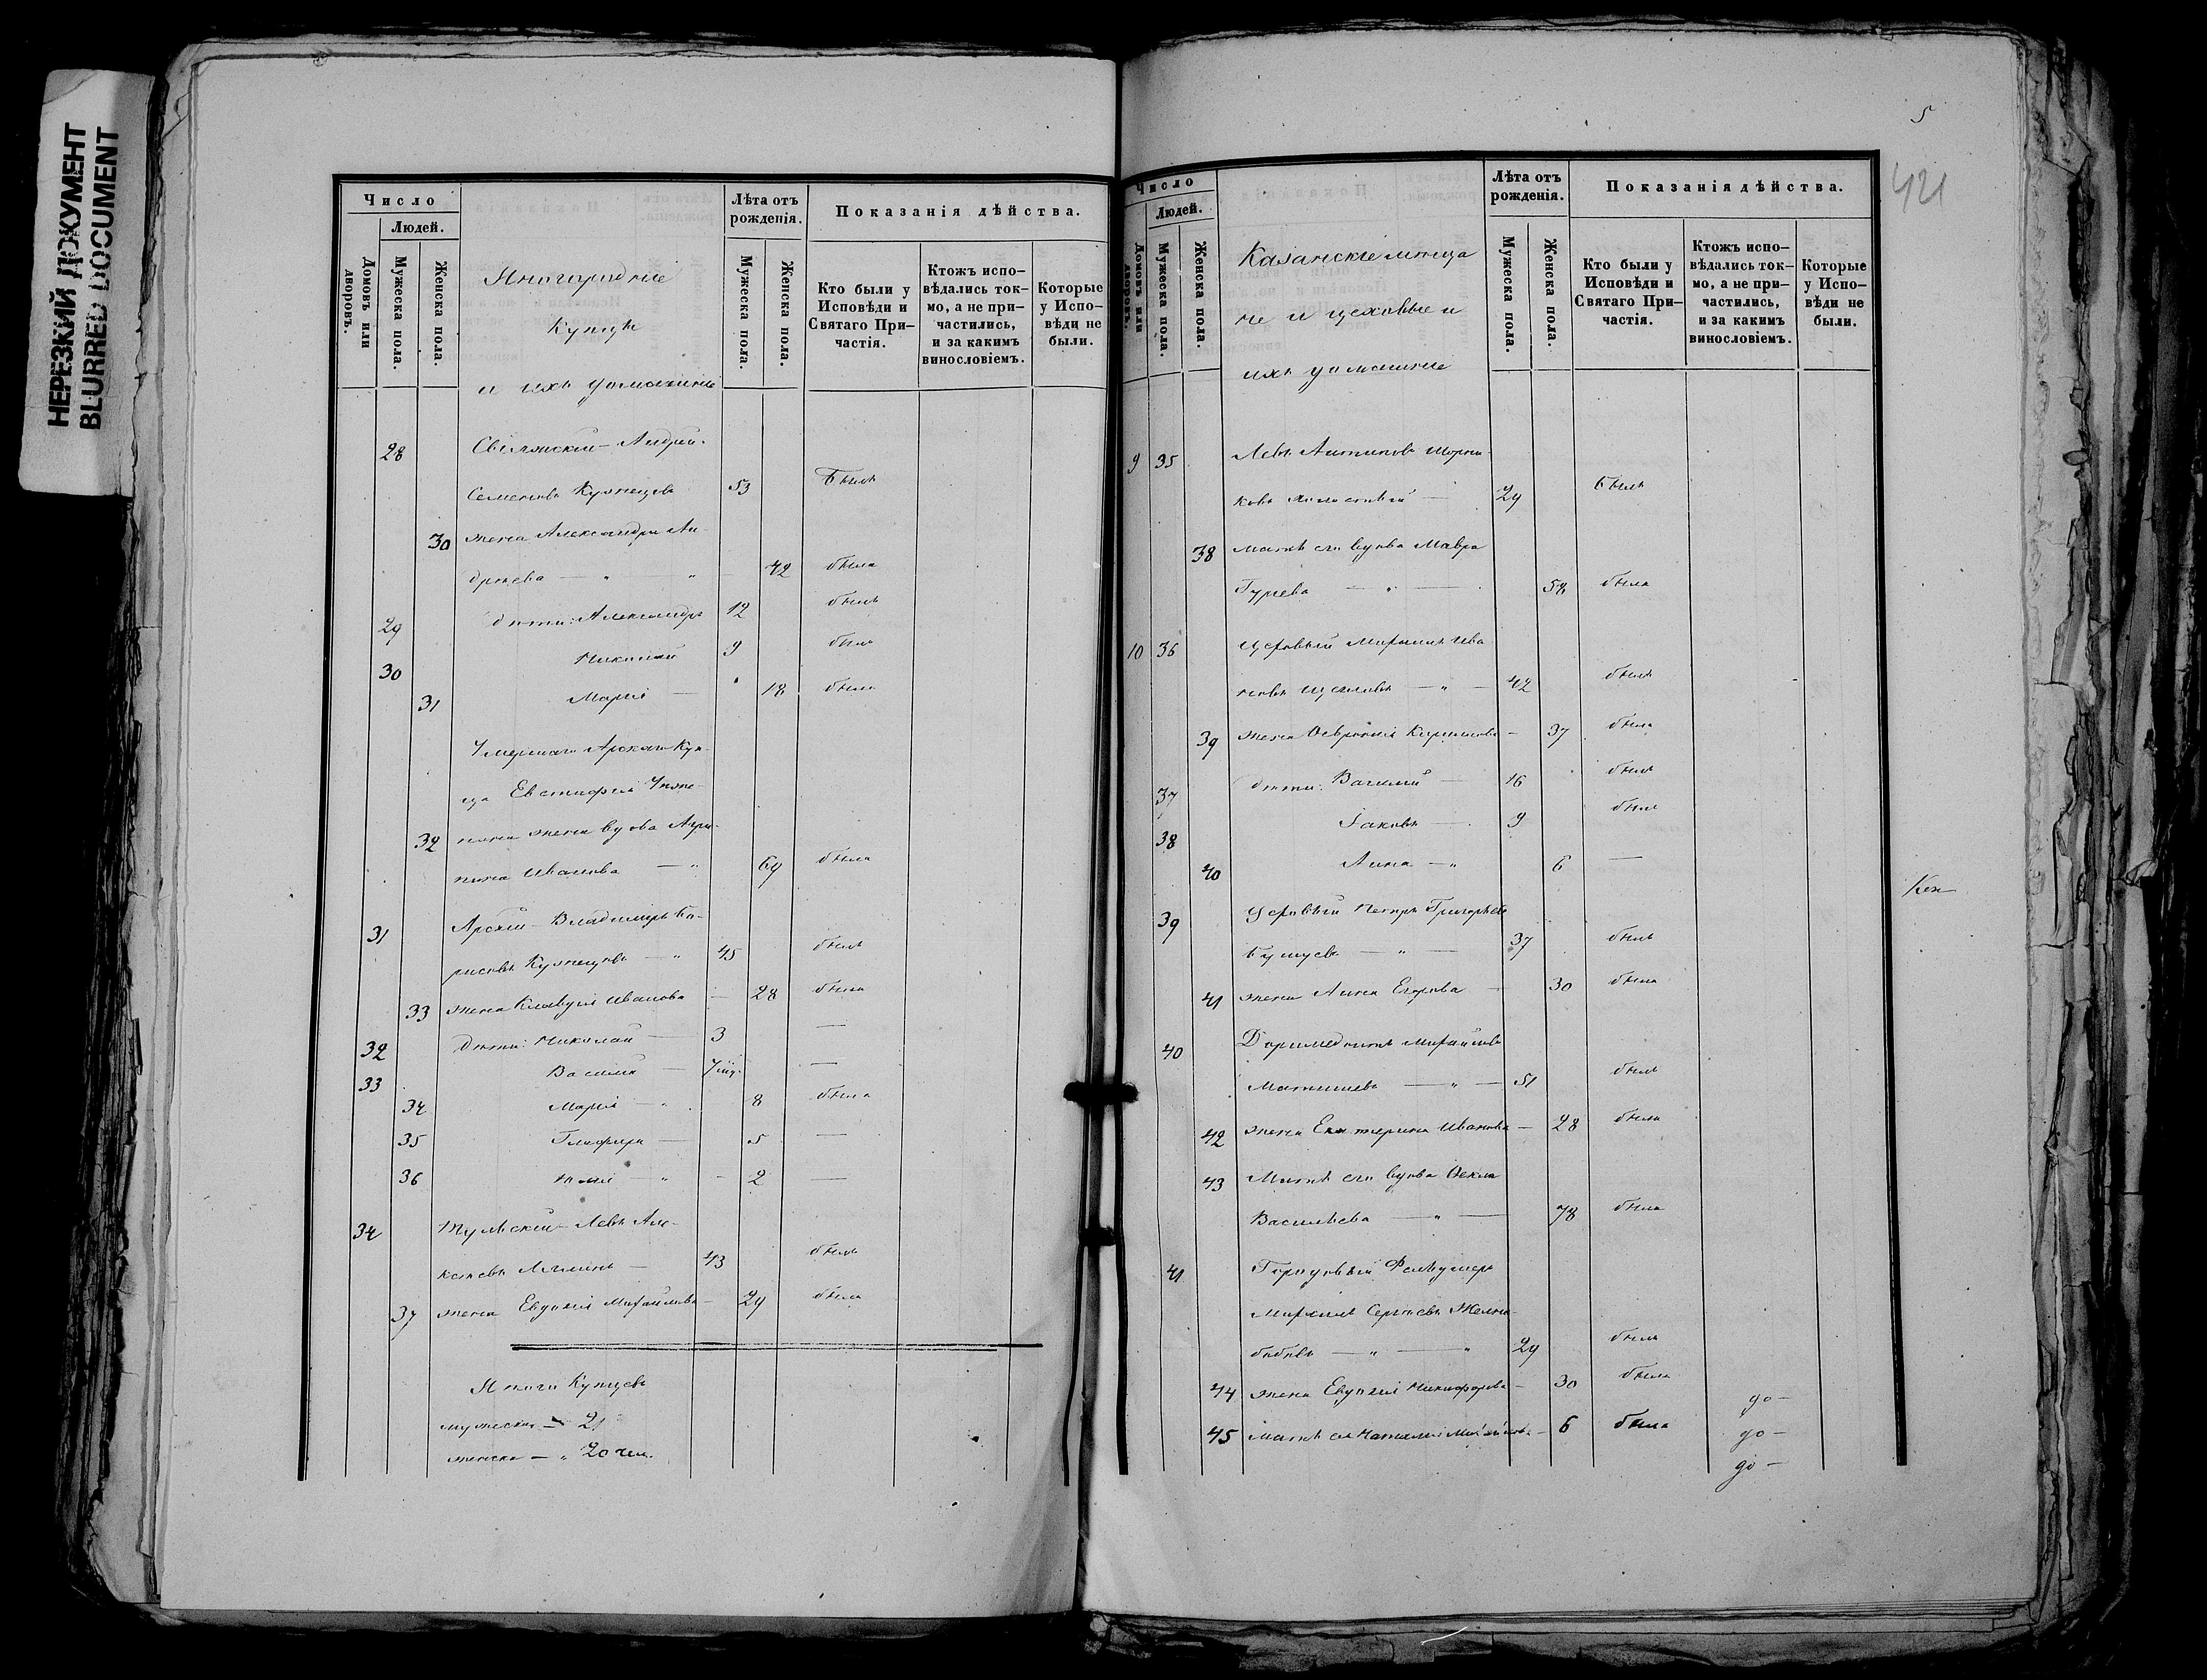 НЕРЕЗКИЙ ДОКУМЕНТ
BLURRED DOCUMENT
Число
Людей.
Домовъ или дворовъ.
Мужеска пола.
Женска пола.
Иногородніе
Купцы
и ихъ домашніе
Лѣта отъ рожденія.
Мужеска пола.
Женска пола.
Показанія дѣйства.
Кто были у Исповѣди и Святаго При-частія.
Ктожъ испо-вѣдались ток-мо, а не при-частились, и за какимъ винословіемъ.
Которые у Испо-вѣди не были.
28 Свіяжскій Андрей
Семеновъ Кузнецовъ 53 былъ
30 жена Александра Ан-
дреева 42 была
29 дѣти: Александръ 12 былъ
30 Николай 9 былъ
31 Марія 18 была
Умершаго Арскаго Куп-
ца Евстафія
32 жена вдова Агри-
пина Иванова 69 была
31 Арскій Владиміръ Бо-
рисовъ Кузнецовъ 45 былъ
33 жена Клавдія Иванова 28 была
32 Дѣти: Николай 3 —
33 Василій —
34 Марія 8 была
35 Глафира 5 —
36 2 —
34 Тульскій Левъ
43 былъ
37 жена Евдокія Михайлова 29 была
Итого Купцевъ
мужеска — 21
женска — 20 чел.
5
421
Число
Людей.
Домовъ или дворовъ.
Мужеска пола.
Женска пола.
Казанскіе мѣща
не и цеховые и
ихъ домашніе
Лѣта отъ рожденія.
Мужеска пола.
Женска пола.
Показанія дѣйства.
Кто были у Исповѣди и Святаго При-частія.
Ктожъ испо-вѣдались ток-мо, а не при-частились, и за какимъ винословіемъ.
Которые у Испо-вѣди не были.
9 35 Левъ Антиповъ Шорни-
ковъ холостый 29 былъ
38 мать его вдова Мавра
Гурьева 58 была
10 36 Цеховый Михаилъ Ива
новъ 42 былъ
39 жена Февронія 37 была
37 дѣти: Василій 16 былъ
38 Іаковъ 9 былъ
40 Анна 6 —
39 Цеховый Петръ Григорьевъ
37 былъ
41 жена Анна Егорова 30 была
40 Доримедонтъ Михайловъ
51 былъ
42 жена Екатерина Иванова 28 была
43 Мать его вдова Фекла
Васильева 78 была
41 Городовый Фельдшеръ
Михаилъ Сергѣевъ
29 былъ
44 жена Евдокія Никифорова 30 была
до —
45 мать ея Наталія 6 была до —
до —